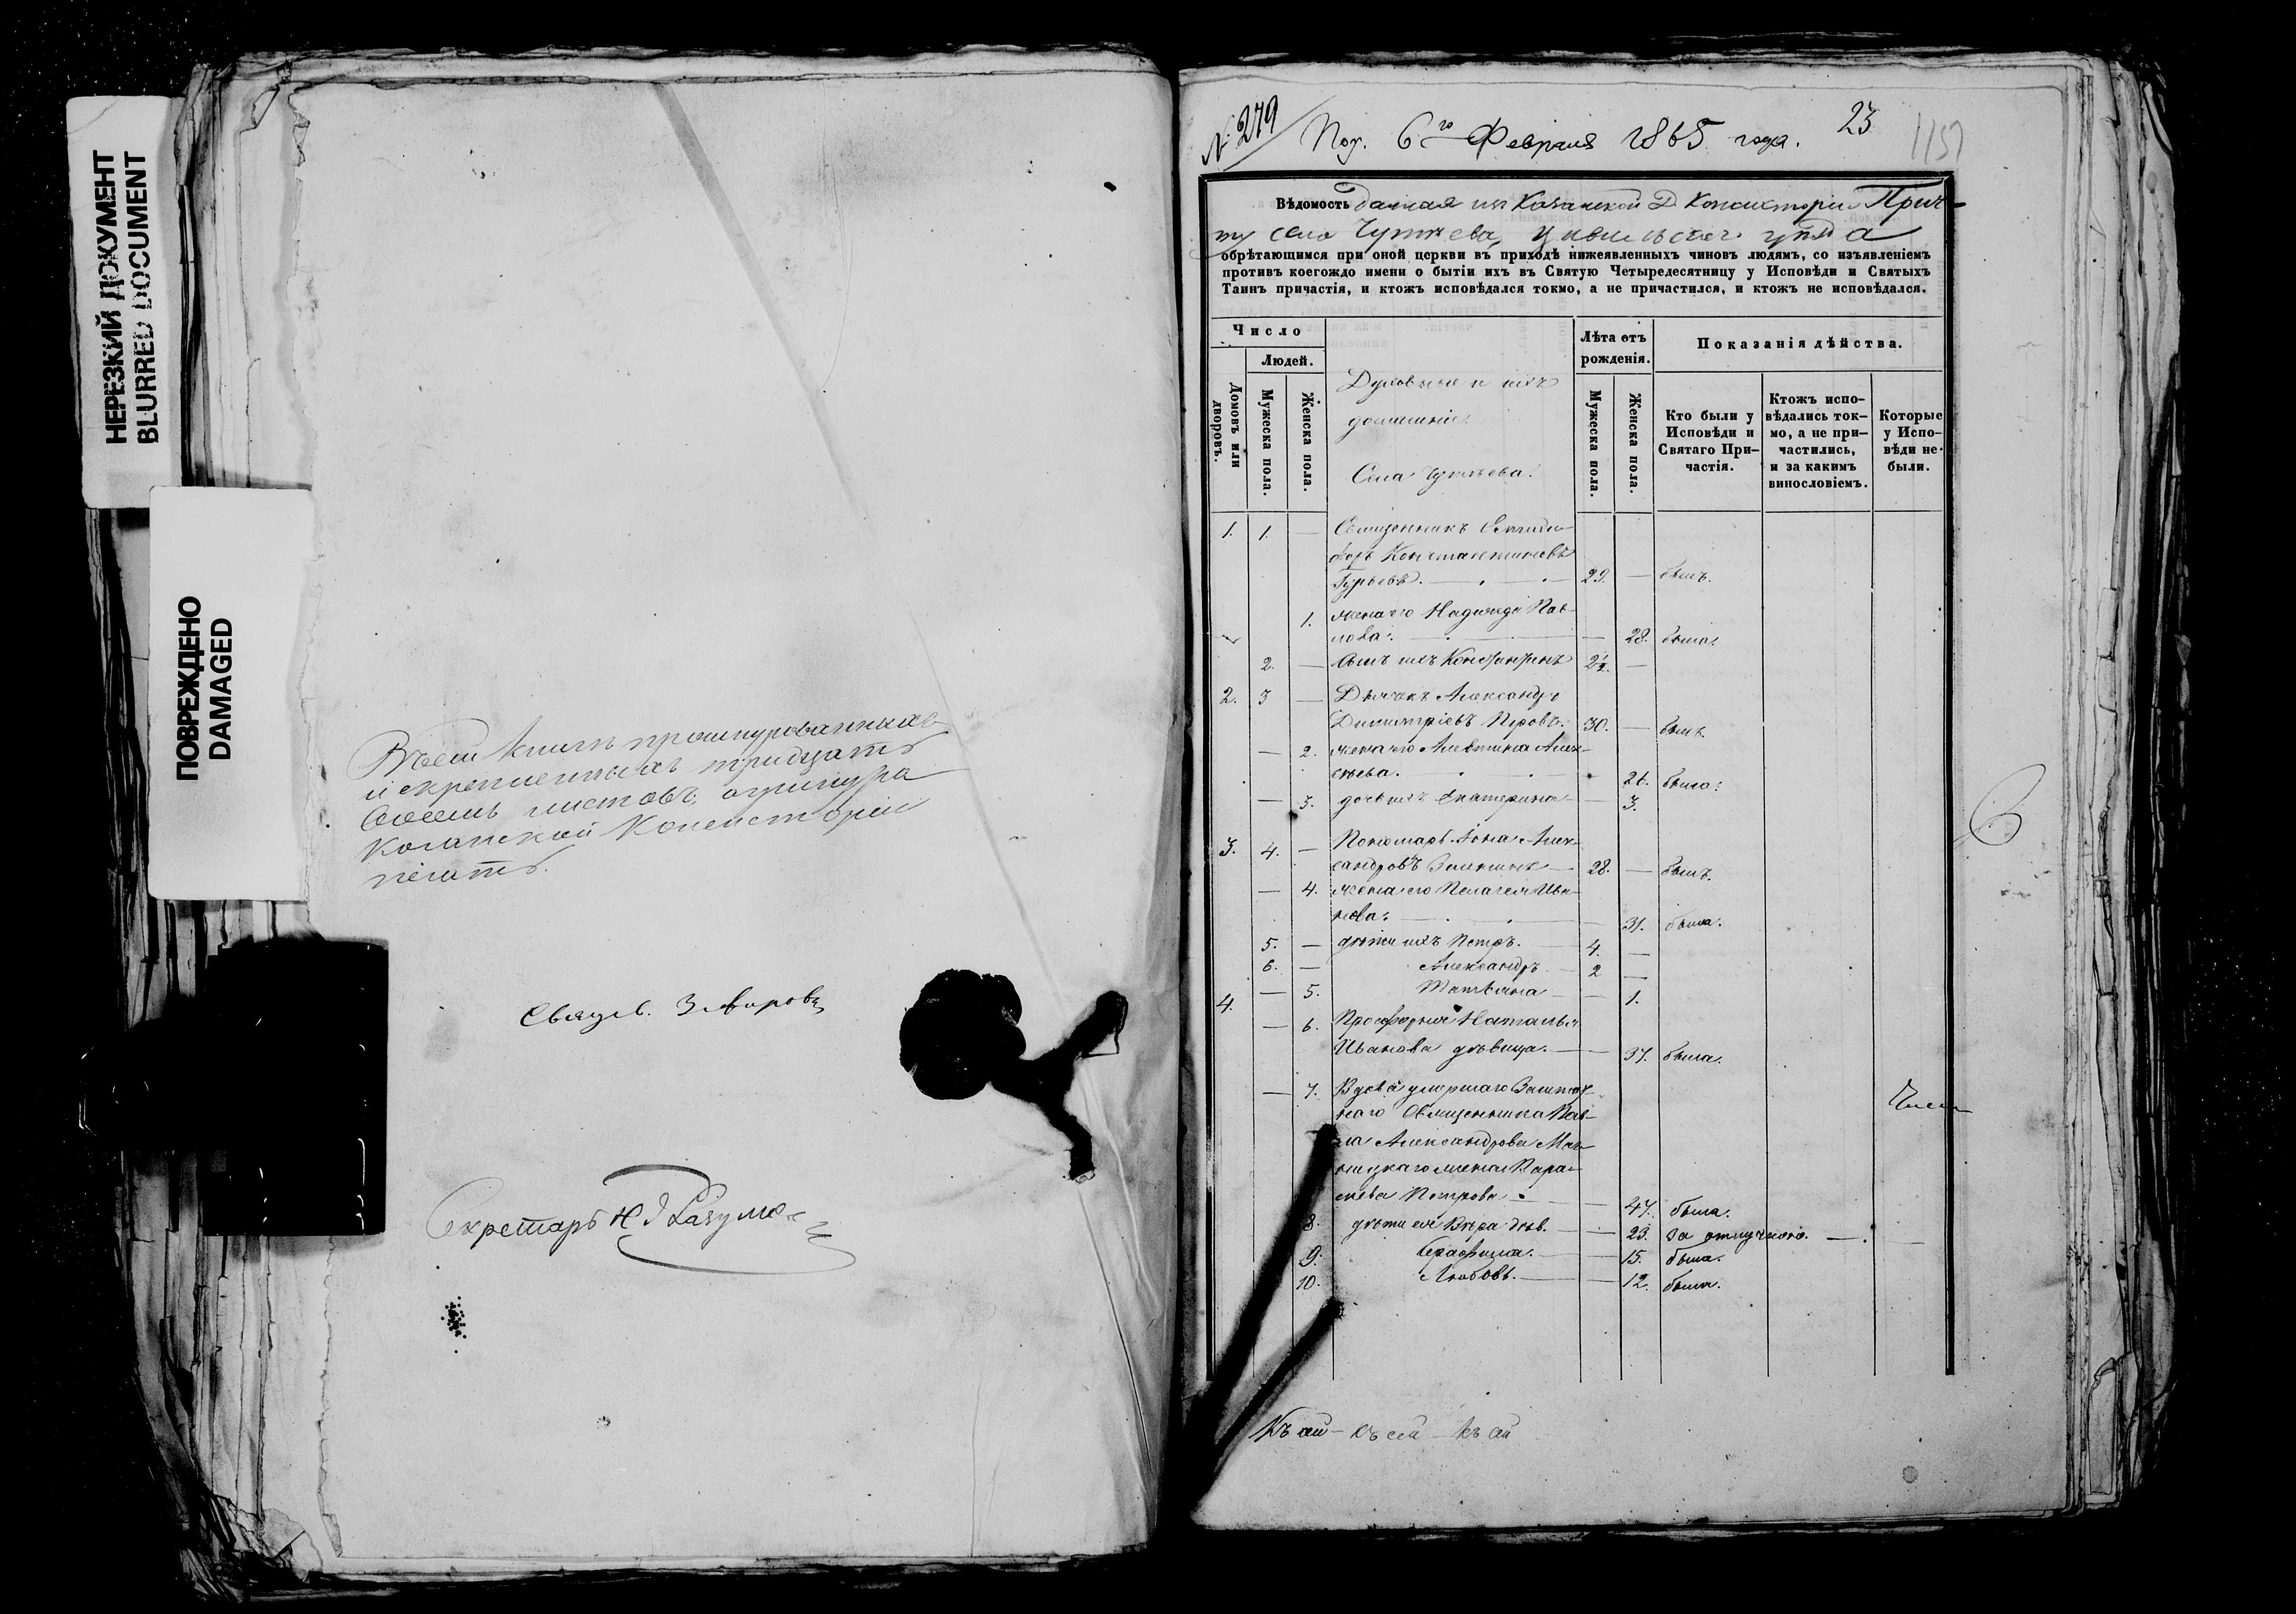 НЕРЕЗКИЙ ДОКУМЕНТ
BLURRED DOCUMENT
ПОВРЕЖДЕНО
DAMAGED
Въ сей книгѣ прошнурованныхъ
и скрепленныхъ тридцать
восемь листовъ, у шнура
Казанской Консисторіи
печать.
Секретарь Н Разумо
№ 279
Пол. 6го Февраля 1865 года.
23
1157
Вѣдомость данная изъ Казанской Д Консисторіи Прич-
ту села Чутѣева, Цивильскаго уѣзда
обрѣтающимся при оной церкви въ приходѣ нижеявленныхъ чиновъ людямъ, со изъявленіемъ
противъ коегождо имени о бытіи ихъ въ Святую Четыредесятницу у Исповѣди и Святыхъ
Таинъ причастія, и ктожъ исповѣдался токмо, а не причастился, и ктожъ не исповѣдался.
Число
Людей.
Домовъ или дворовъ.
Мужеска пола.
Женска пола.
Духовные и ихъ
домашніе.
Села Чутѣева.
Лѣта отъ рожденія.
Мужеска пола.
Женска пола.
Показанія дѣйства.
Кто были у Исповѣди и Святаго При-частія.
Ктожъ испо-вѣдались ток-мо, а не при-частились, и за какимъ винословіемъ.
Которые у Испо-вѣди не были.
1. 1. — Священникъ
Константиновъ
Гурьевъ. — 29. — былъ.
1. жена его Надежда Пав-
лова. — 28. была.
2. — Сынъ ихъ Константинъ 2½ —
2. 3 — Дьячекъ Александръ
Димитріевъ 30. — былъ.
— 2. жена его Алевтина Алек-
сѣева. 26. была.
— 3. дочь ихъ Екатерина — 3.
3. 4. — Пономарь Іона Алек-
сандровъ — 28. — былъ.
— 4. жена его Пелагея Ива-
нова. — 31. была.
5. — дѣти ихъ Петръ. 4. —
6. — Александръ 2 —
— 5. Татьяна — 1.
4.
— 6. Просфорня Наталья
Иванова дѣвица. — 37. была.
— 7. Вдова умершаго Заштат-
наго Священника Пав-
ла Александрова
жена Пара-
скева Петрова — 47. была.
8. дѣти ея Вѣра дѣв. — 23. за отлучкою. —
9. Серафима. — 15. была.
10. Любовь. — 12. была.
Къ сей — къ сей — къ сей